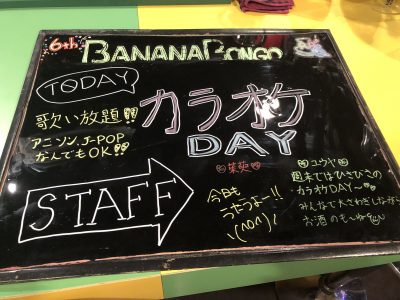 6th BANANA BONGO
TODAY
歌い放題!!
アニソン、J-POP
なんでもOK!!
カラオケ
DAY
STAFF
今日も
うたうよー!!
\(^o^)/
ユウヤ
週末ではひさびさの
カラオケDAY〜
みんなで大さわぎしながら
お酒のも〜ね